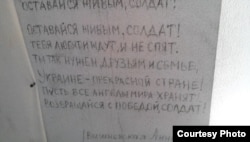 ОСТАВАЙСЯ ЖИВЫМ, СОЛДАТ!
ОСТАВАЙСЯ ЖИВЫМ, СОЛДАТ!
ТЕБЯ ЛЮБЯТ И ЖДУТ, И НЕ СПЯТ.
ТЫ ТАК НУЖЕН ДРУЗЬЯМ И СЕМЬЕ,
УКРАИНЕ - ПРЕКРАСНОЙ СТРАНЕ!
ПУСТЬ ВСЕ АНГЕЛЫ МИРА ХРАНЯТ
ВОЗВРАЩАЙСЯ С ПОБЕДОЙ, СОЛДАТ!
Courtesy Photo